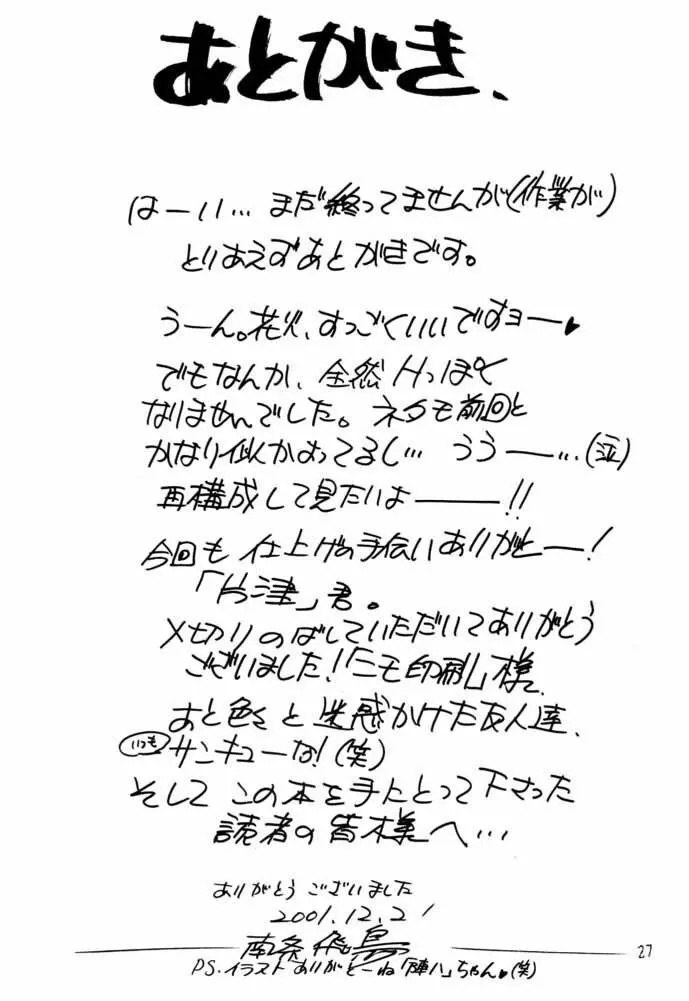 あとがき、
はーい… まだ終ってませんが(作業が)
とりあえずあとがきです。
うーん。花火、すっごくいいですョー♥
でもなんか、全然Hっぽく
なりませんでした。ネタも前回と
かなり似かよってるし… うう——…(泣)
再構成して見たいよ———!!
今回も仕上げの手伝いありがとー!
「片津」君。
〆切りのばしていただいてありがとう
ございました!「ニモ印刷」様、
あと色々と迷惑かけた友人達、
いつも サンキューな!(笑)
そしてこの本を手にとって下さった
読者の皆様へ…
ありがとうございました
2001.12.21
南条飛鳥
PS.イラストありがとーね「陣八」ちゃん♥(笑)
27